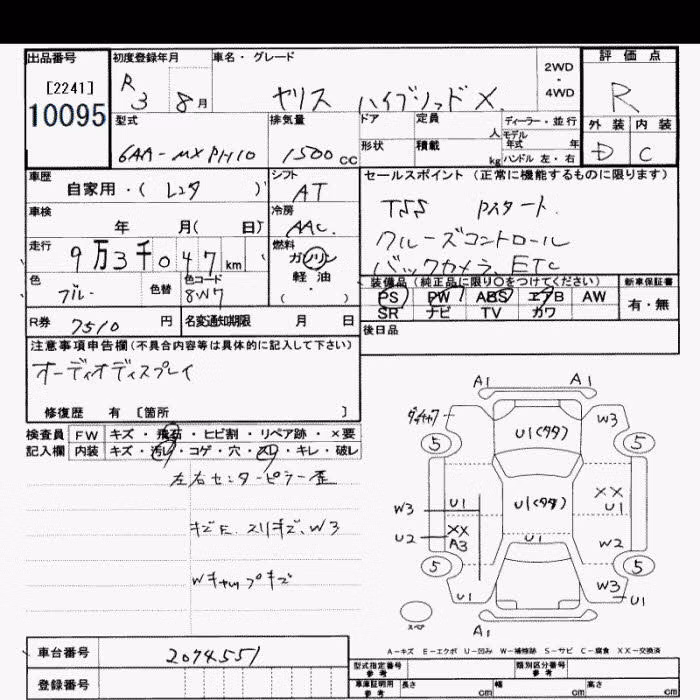 出品番号
[2241]
10095
初度登録年月
R
3 8月
車名・グレード
ヤリス ハイブリッド X
2WD
・
4WD
評価点
R
型式
6AA-MXPH10
排気量
1500cc
ドア
定員
人
形状
積載
kg
ディーラー・並行
モデル
年式 年
ハンドル 左・右
外装 内装
D C
車歴
自家用・( レンタ )
シフト
AT
セールスポイント (正常に機能するものに限ります)
TSS Pスタート.
クルーズコントロール
バックカメラ、ETC
車検
年 月( 日)
冷房
AAC
走行
9万3千047km
燃料
ガソリン
軽・油
( ・ )
色
ブルー
色替
色コード
8W7
装備品 (純正品に限り○をつけてください)
PS PW ABS エアB AW
SR ナビ TV カワ
新車保証書
有・無
R券 7510 円
名変通知期限 月 日
後日品
注意事項申告欄(不具合内容等は具体的に記入して下さい)
オーディオディスプレイ
修復歴 有 [箇所 ]
検査員 FW キズ・飛石・ヒビ割・リペア跡・×要
記入欄 内装 キズ・汚レ・コゲ・穴・スレ・キレ・破レ
左右センターピラー歪
キズE.スリキズ、W3
Wキャップキズ
A1 A1
ダイヤキワ
W3
5 5
U1(タタ)
W3 U1
U1(タタ)
XX
U1
U2 XX
A3
U1
W2
5 5
U1
W3
U1
スペア
A1
A-キズ E-エクボ U-凹み W-補修跡 S-サビ C-腐食 XX-交換済
車台番号 2074551
登録番号
型式指定番号
参考
類別区分番号
参考
車庫証明用
参考
長さ cm 幅 cm 高さ cm